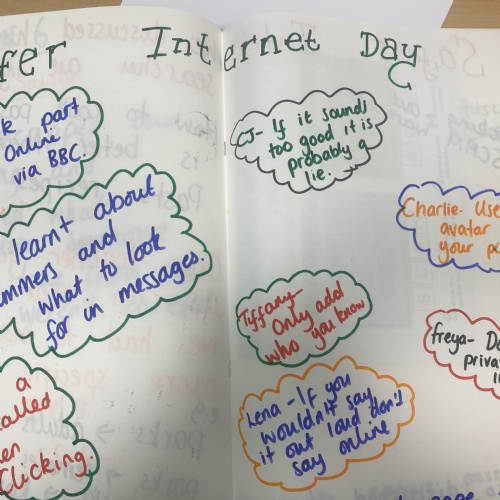 fer Internet Day
k part
Online
via BBC.
learnt about
mmers and
what to look
for in messages.
a
alled
en
Clicking.
CJ- If it sounds
too good it is
probably a
lie.
Charlie- Use
avatar
your p
Tiffany-
Only add
who you know
Freya- Do
priva
Lena - If you
wouldn't say
it out loud don't
say online